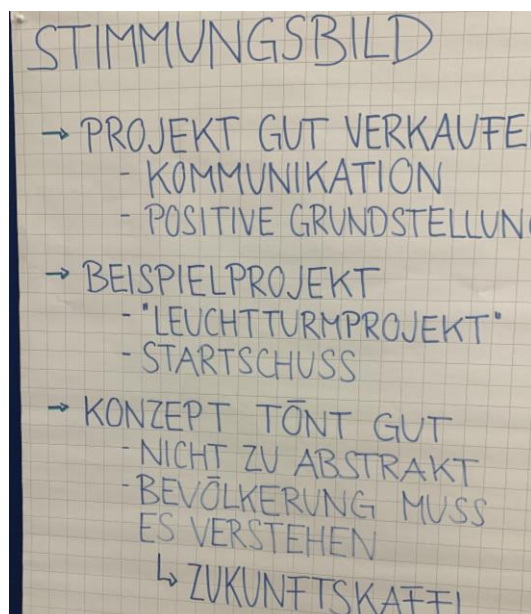 STIMMUNGSBILD
→ PROJEKT GUT VERKAUFE
- KOMMUNIKATION
- POSITIVE GRUNDSTELLUN
→ BEISPIELPROJEKT
- "LEUCHTTURMPROJEKT"
- STARTSCHUSS
→ KONZEPT TÖNT GUT
- NICHT ZU ABSTRAKT
- BEVÖLKERUNG MUSS
ES VERSTEHEN
↳ ZUKUNFTSKAFFI